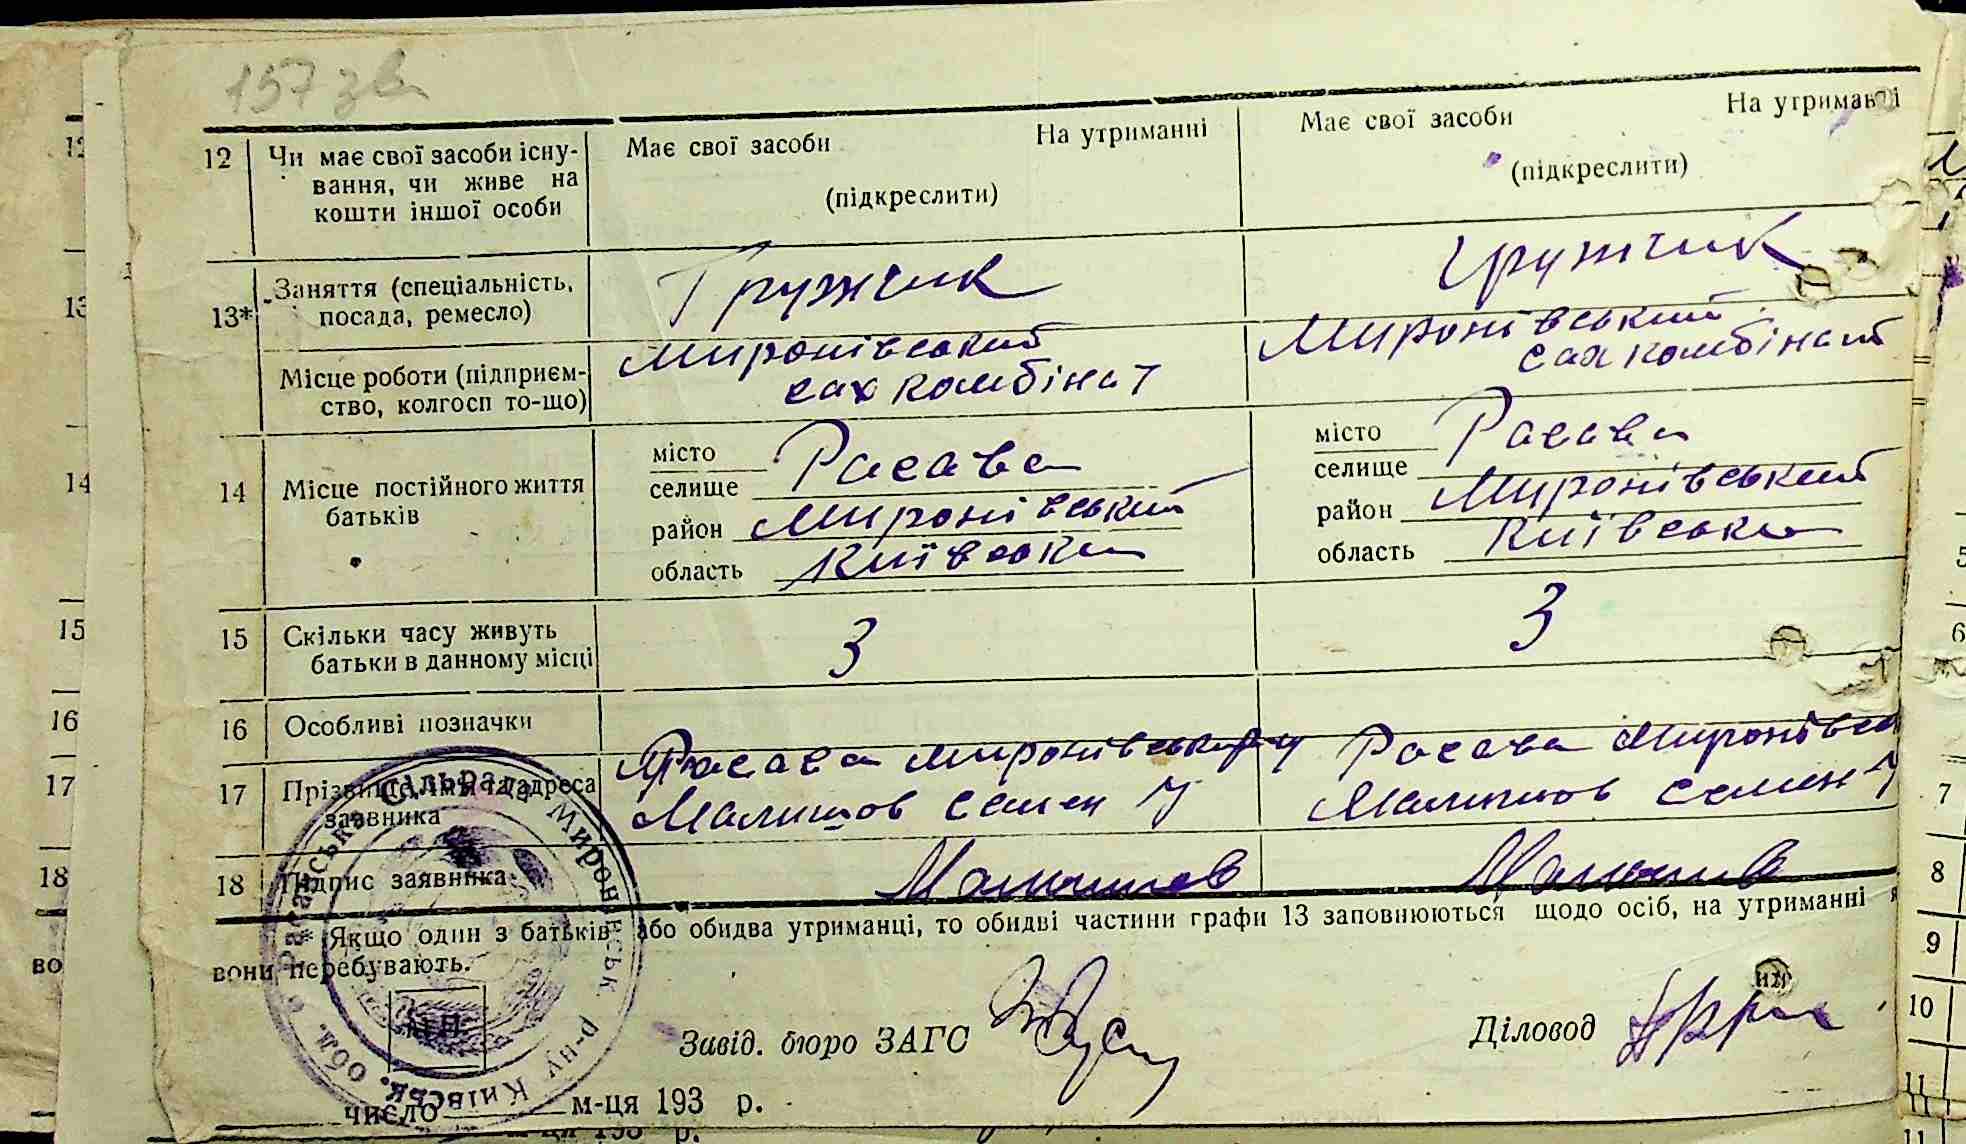 157 зв
12 Чи має свої засоби існу- Має свої засоби На утриманні Має свої засоби На утриманні
вання, чи живе на (підкреслити) (підкреслити)
кошти іншої особи
13* Заняття (спеціальність, Гружчик гружчик
посада, ремесло)
Місце роботи (підприєм- Миронівський Миронівський
ство, колгосп то-що) сахкомбінат сахкомбінат
14 Місце постійного життя батьків
місто Росава місто Росава
селище селище
район Миронівський район Миронівський
область Київська область Київська
15 Скільки часу живуть 3 3
батьки в данному місці
16 Особливі позначки
17 Прізвище, імя та адреса Росава Миронівський Росава Миронівсь
заявника Малишов Семен У Малишов Семен У
18 Підпис заявника Малишов Малишов
* Якщо один з батьків або обидва утриманці, то обидві частини графи 13 заповнюються щодо осіб, на утриманні я
вони перебувають.
М.П.
Завід. бюро ЗАГС Діловод
число м-ця 193 р.
Сільрада Миронівськ. р-ну Київськ. обл.
12
13
14
15
16
17
18
во
5
6
7
8
9
10
11